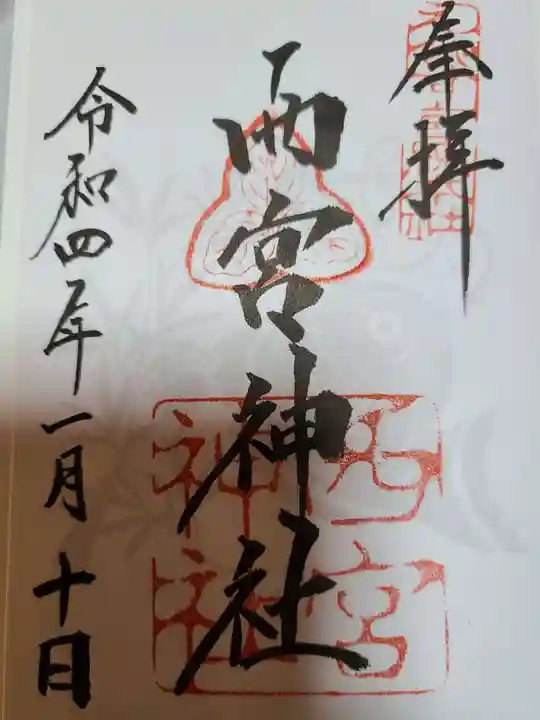 奉拝
西宮神社
西宮
神社
令和四年一月十日